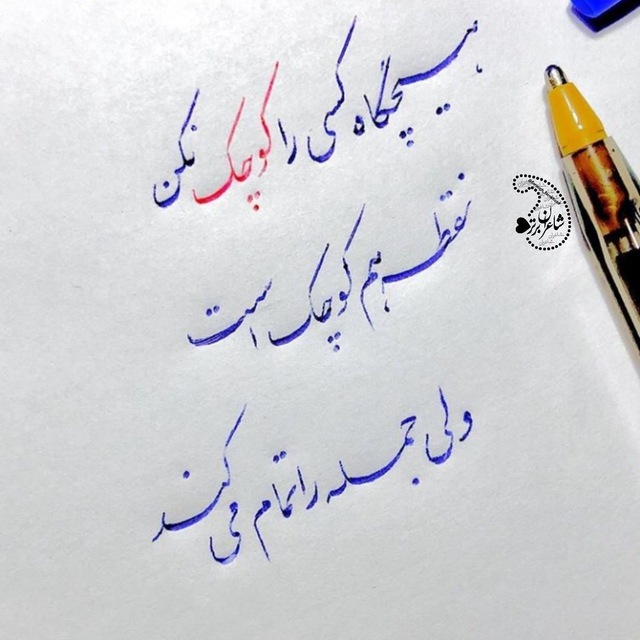 هیچگاه کسی را کوچک نکن
نقطه هم کوچک است
ولی جمله را تمام می کند
شاعران برتر